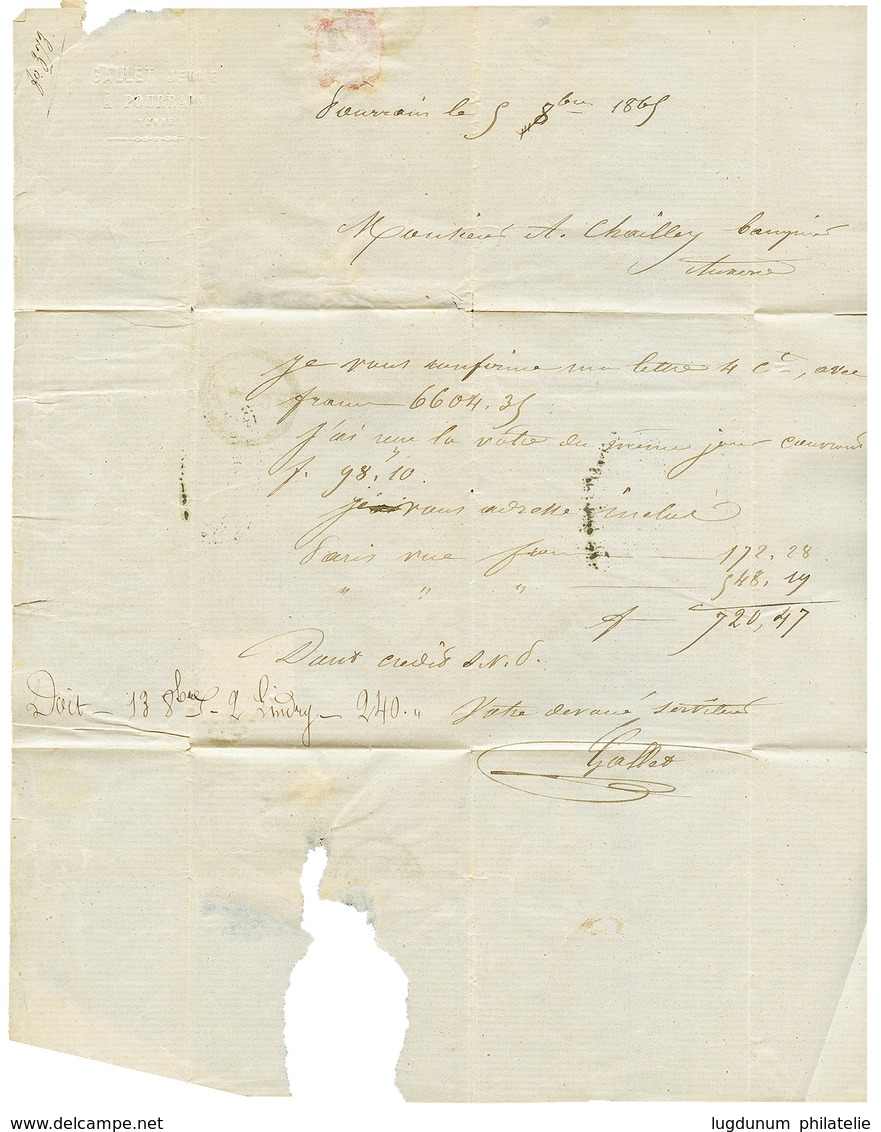 GALLET JEUNE
A POURRAIN
YONNE
Pourrain le 5 8bre 1865
Monsieur A. Chailley banquier
Auxerre
Je vous confirme ma lettre 4 Ct, avec
francs 6604.35
J'ai reçu la votre du même jour couvrant
f. 98,10.
Je vous adresse inclus
Paris vue fran 172.28
" " " 548.19
f 720,47
Dont crédit S.V.P.
Doit - 13 8bre - 2 Lindry - 240. "
Votre dévoué serviteur
Gallet
www.delcampe.net
lugdunum philatelie